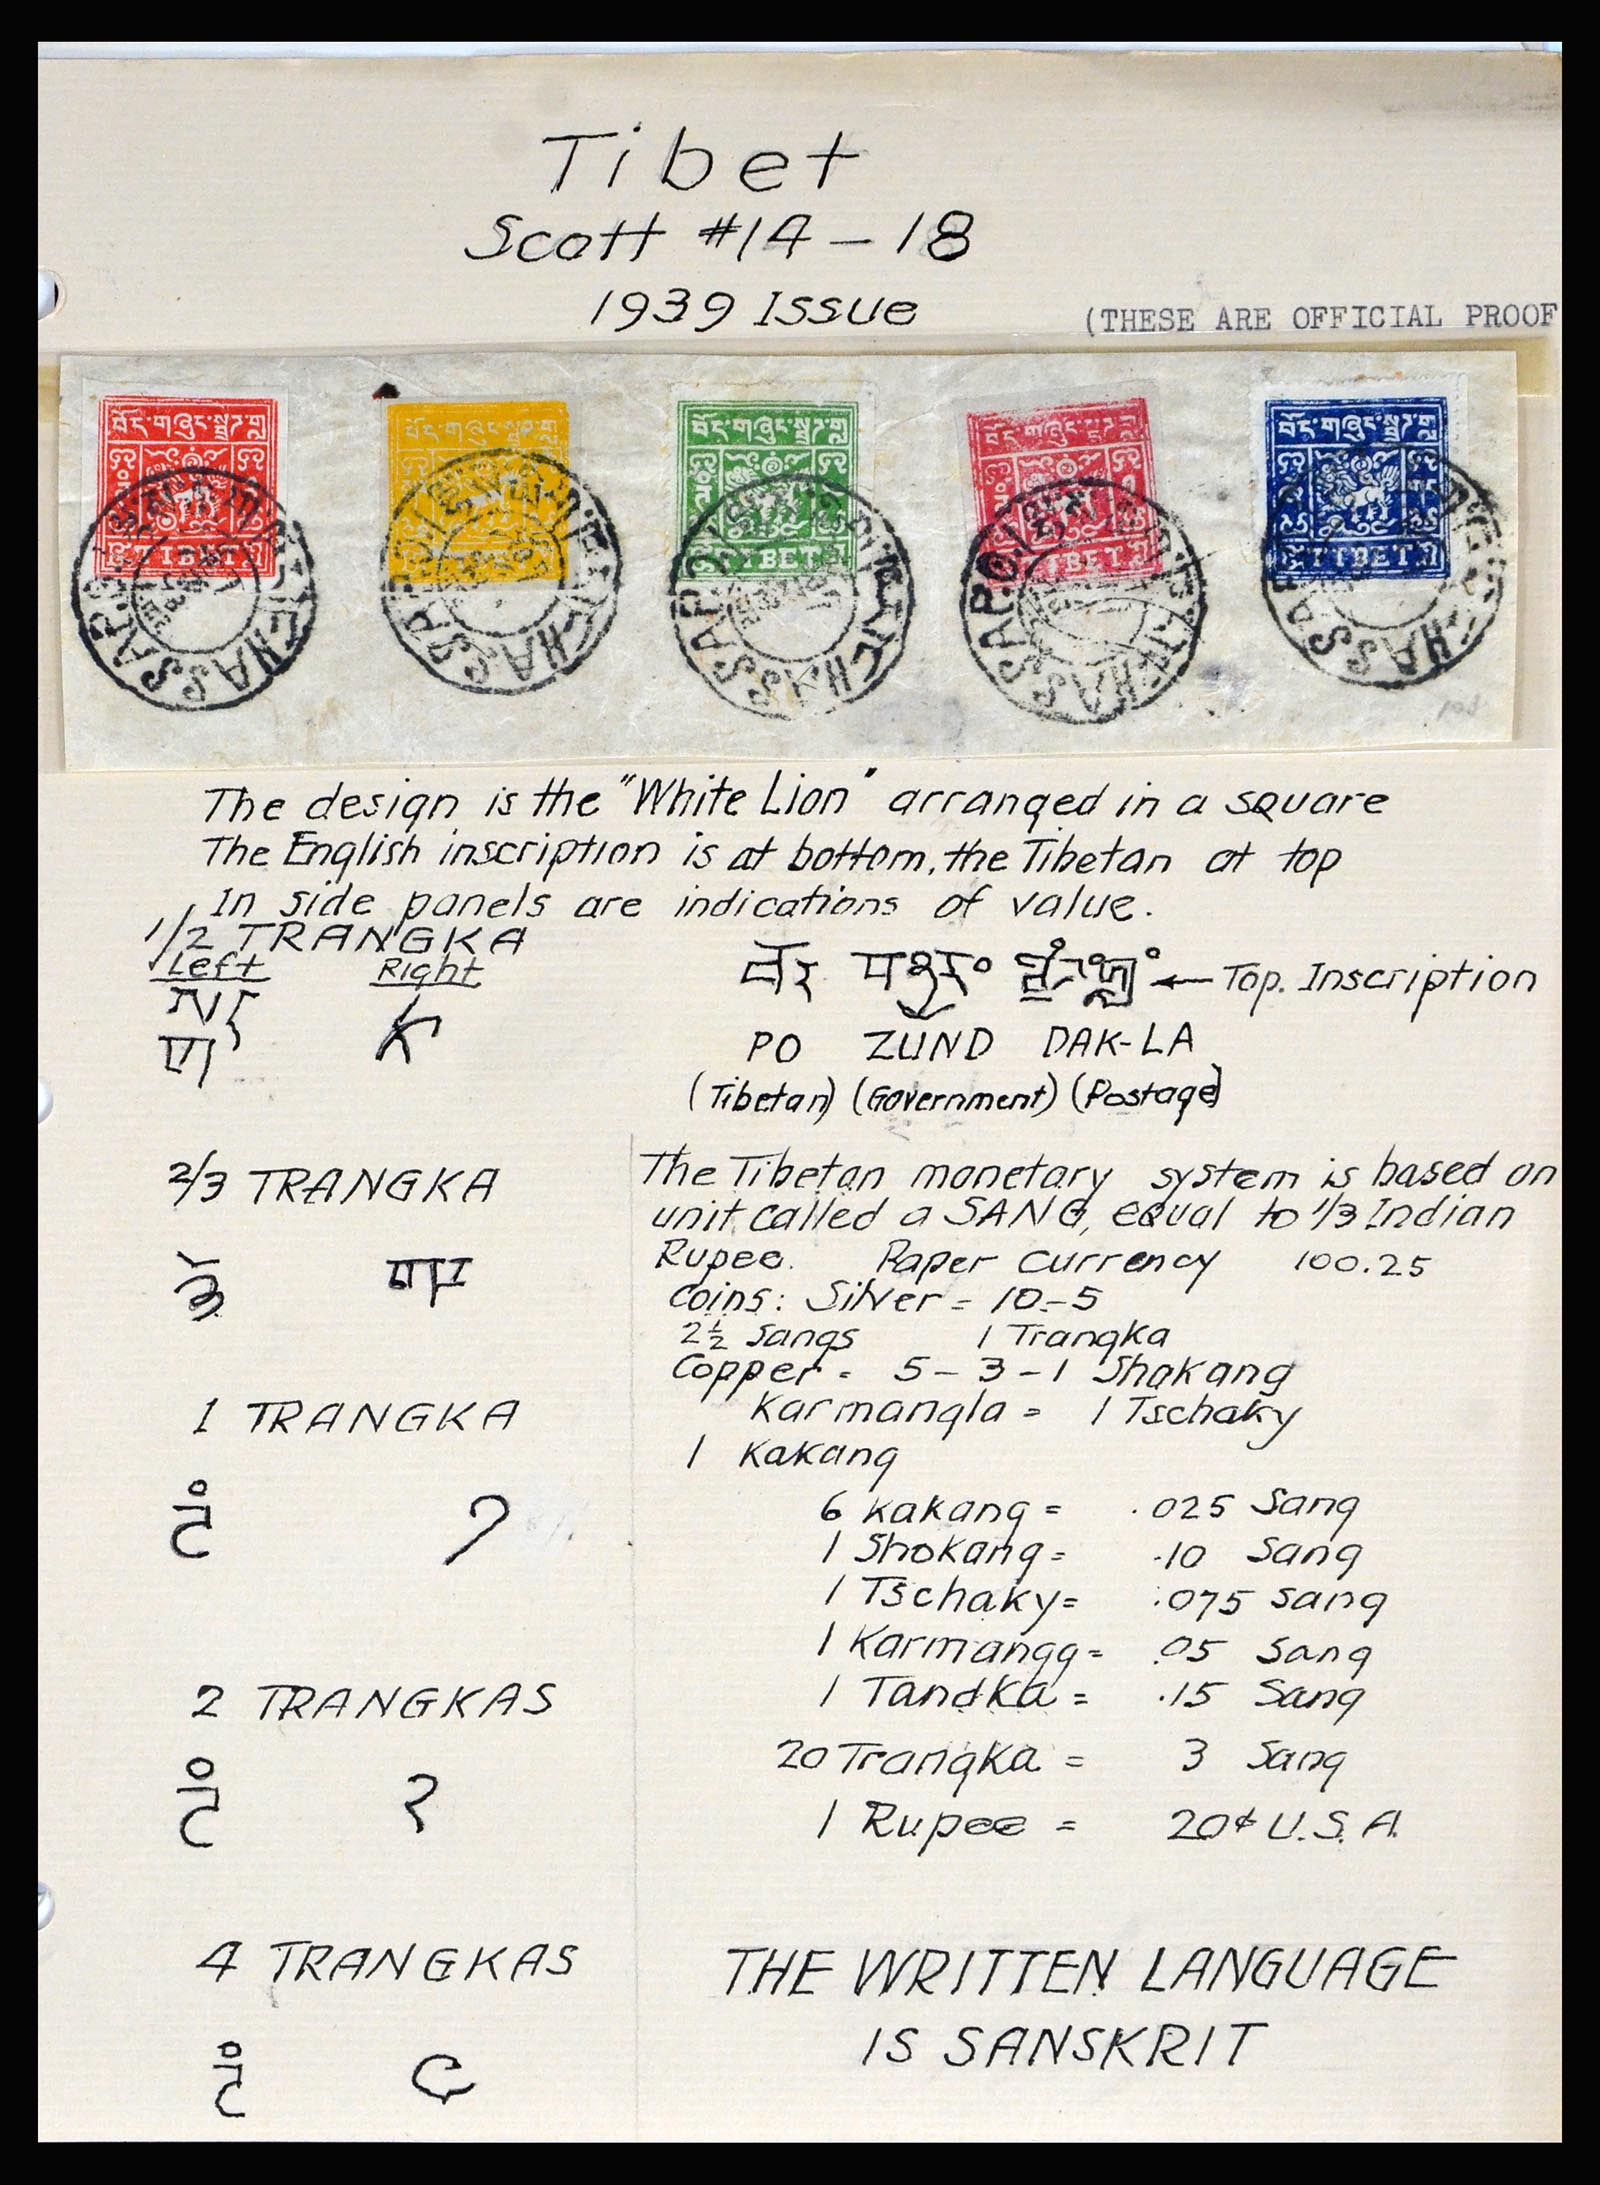 Tibet
Scott #14-18
1939 Issue
(THESE ARE OFFICIAL PROOF
བོད་གཞུང་སྦྲག་ལྟ
TIBET
LHASSA P.O.
བོད་གཞུང་སྦྲག་ལྟ
TIBET
LHASSA P.
བོད་གཞུང་སྦྲག་ལྟ
TIBET
LHASSA P.
བོད་གཞུང་སྦྲག་ལྟ
TIBET
LHASSA P.O.
བོད་གཞུང་སྦྲག་ལྟ
TIBET
LHASSA
The design is the "White Lion" arranged in a square
The English inscription is at bottom, the Tibetan at top
In side panels are indications of value.
1/2 TRANGKA
Left Right
← Top. Inscription
PO ZUND DAK-LA
(Tibetan) (Government) (Postage)
2/3 TRANGKA
1 TRANGKA
༡
2 TRANGKAS
༢
4 TRANGKAS
The Tibetan monetary system is based on
unit called a SANG, equal to 1/3 Indian
Rupee. Paper Currency 100.25
Coins: Silver = 10-5
2½ Sangs 1 Trangka
Copper = 5-3-1 Shakang
Karmangla = 1 Tschaky
1 Kakang
6 Kakang = .025 Sang
1 Shokang = .10 Sang
1 Tschaky = .075 Sang
1 Karmangg = .05 Sang
1 Tandka = .15 Sang
20 Trangka = 3 Sang
1 Rupee = 20¢ U.S.A.
THE WRITTEN LANGUAGE
IS SANSKRIT